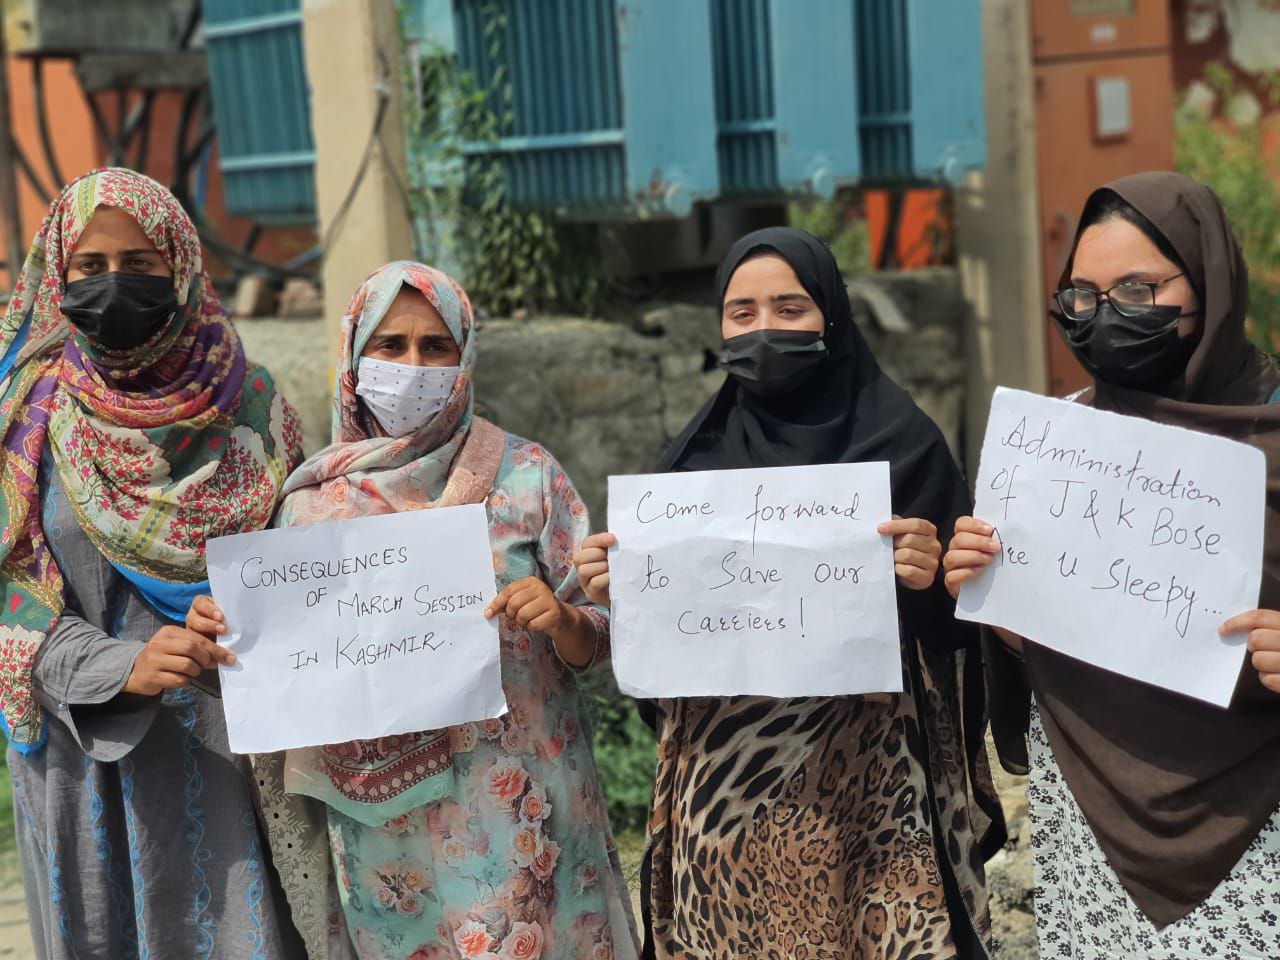 CONSEQUENCES
OF MARCH SESSION
IN KASHMIR.
Come forward
to Save our
Carriers!
Administration
of J & K Bose
Are u Sleepy...